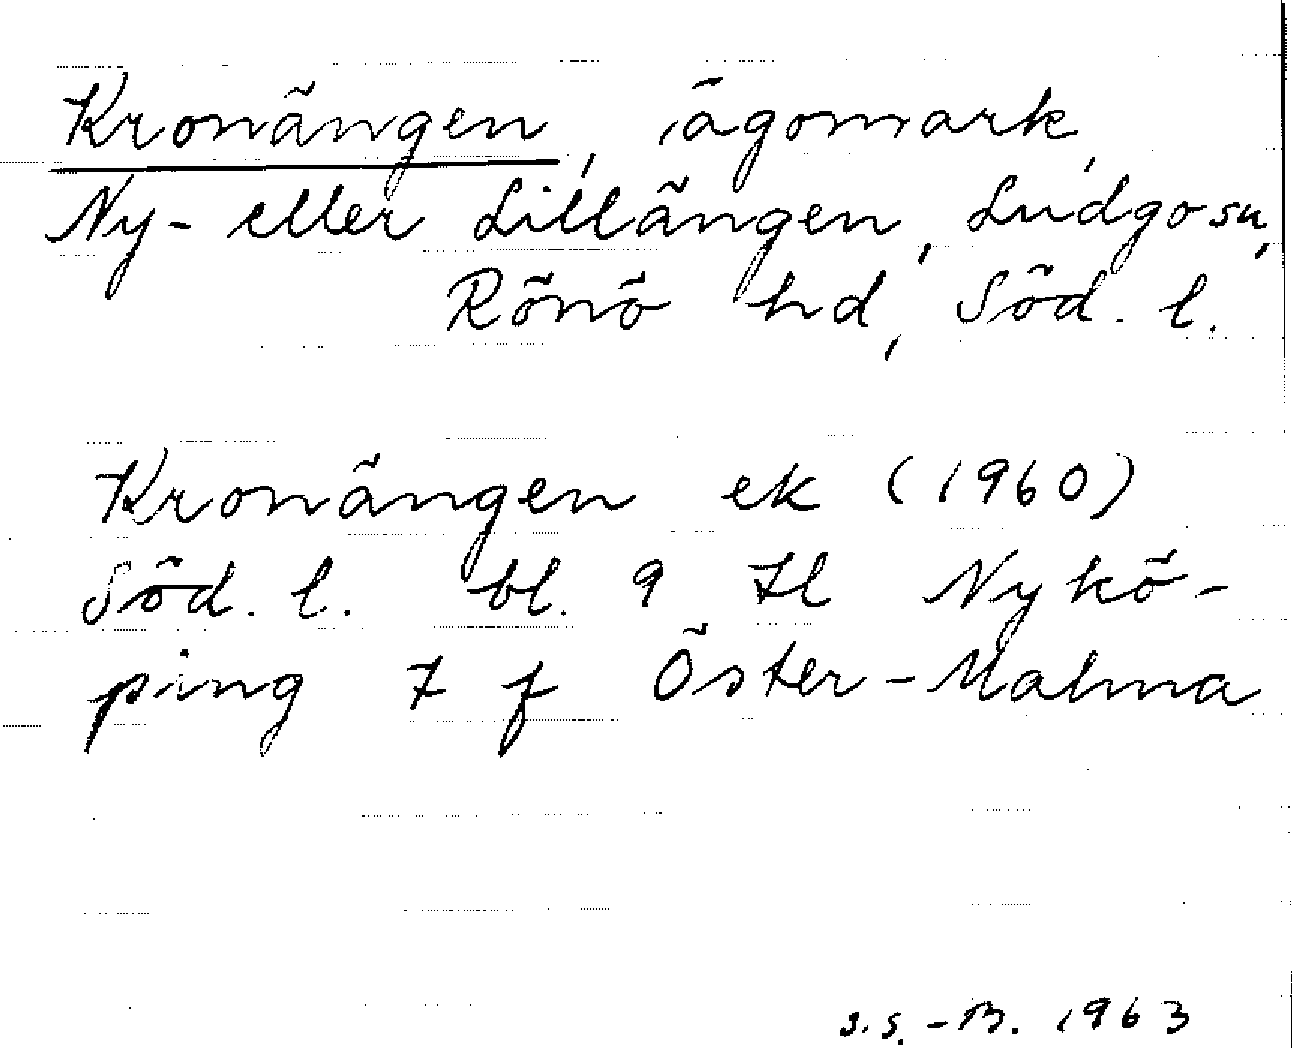 Kronängen, ägomark,
Ny- eller Lillängen, Ludgo sn,
Rönö hd, Söd. l.
Kronängen ek (1960)
Söd. l. bl. 9 Il Nykö-
ping 7 f Öster-Malma
S.S.-B. 1963